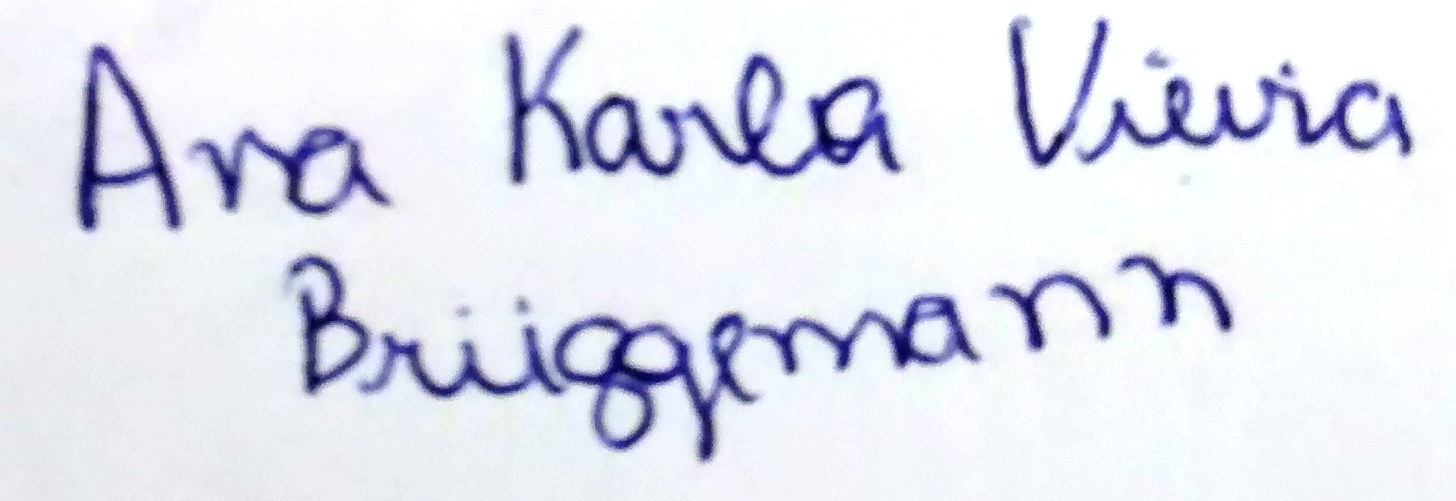 Ana Karla Vieira
Brüggemann